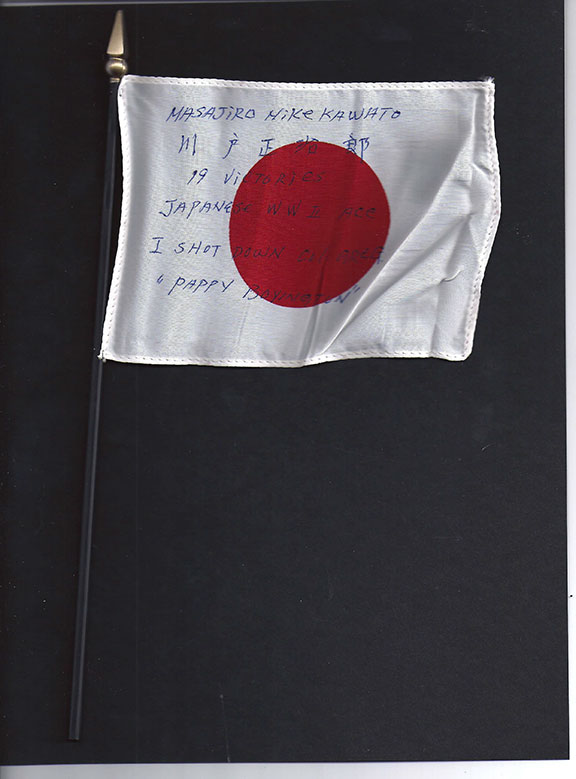 MASAJIRO MIKE KAWATO
川戸正治郎
19 VICTORIES
JAPANESE WW II ACE
I SHOT DOWN COL GREG
"PAPPY BOYINGTON"